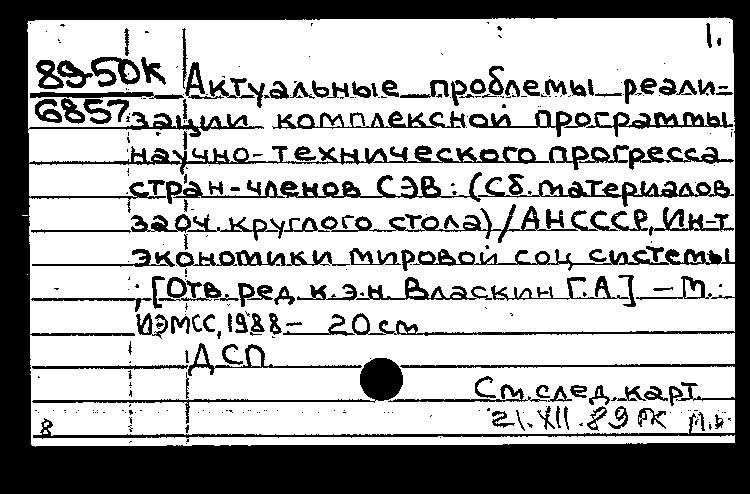 1.
89-50К Актуальные проблемы реали=
6857 зации комплексной программы
научно-технического прогресса
стран-членов СЭВ: (Сб. материалов
заоч. круглого стола) / АН СССР, Ин-т
экономики мировой соц. системы
; [Отв. ред. к.э.н. Власкин Г.А.] – М.:
ИЭМСС, 1988 – 20 см.
ДСП.
См. след. карт.
8 21.XII.89